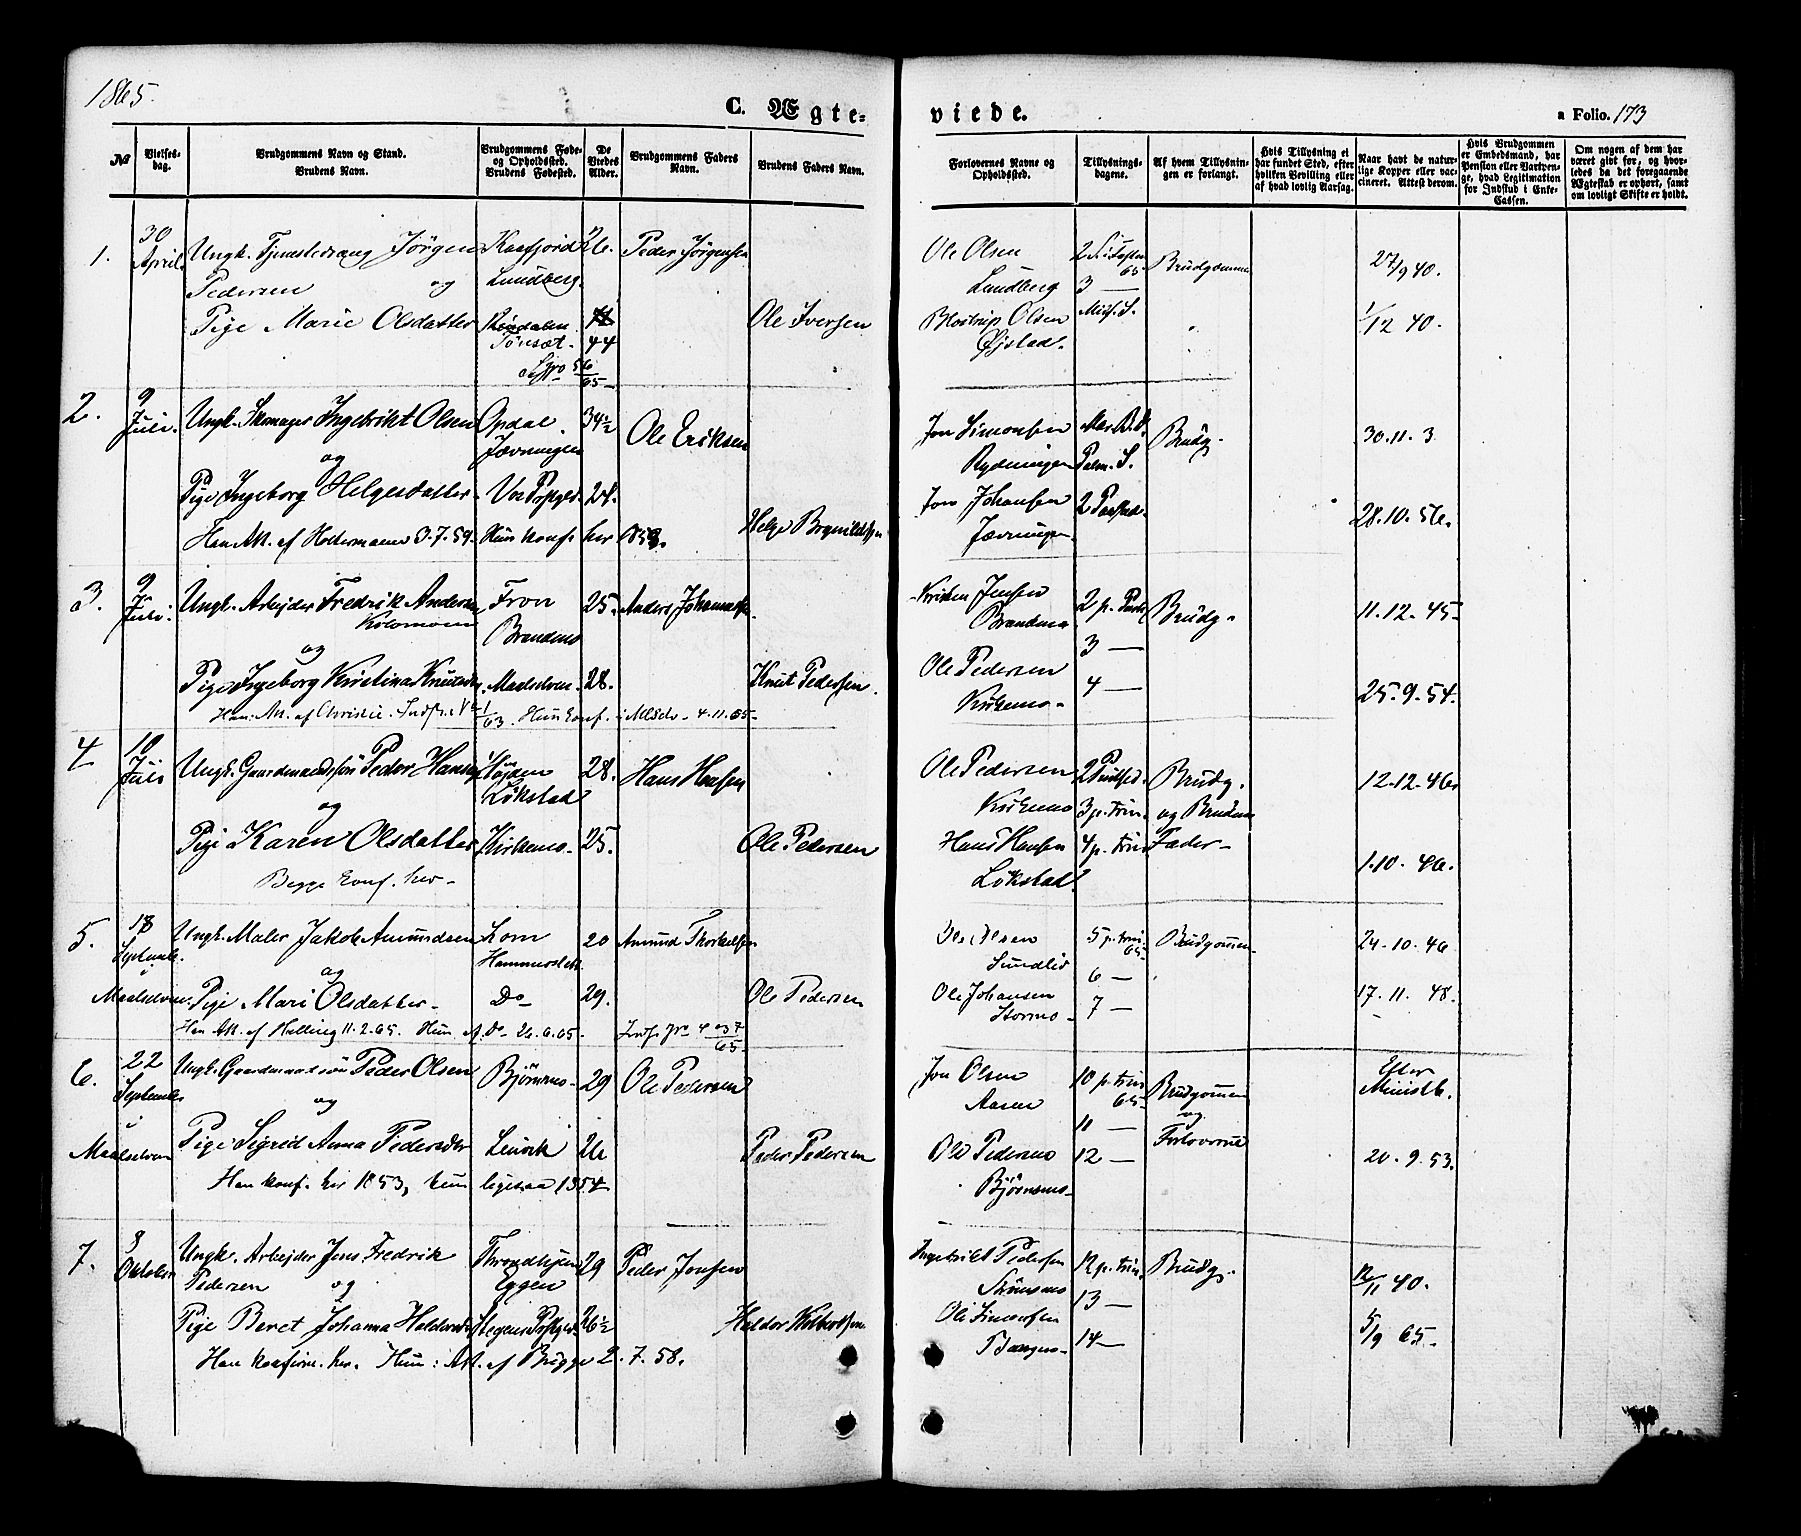 1865.
C. Ægte-
viede.
a Folio. 173
No
Vielses-
dag.
Brudgommens Navn og Stand.
Brudens Navn.
Brudgommens Føde-
og Opholdssted.
Brudens Fødested.
De
Viedes
Alder.
Brudgommens Faders
Navn.
Brudens Faders Navn.
Forlovernes Navne og
Opholdssted.
Tillysnings-
dagene.
Af hvem Tillysnin-
gen er forlangt.
Hvis Tillysning ei
har fundet Sted, efter
hvilken Bevilling eller
af hvad lovlig Aarsag.
Naar havt de natur-
lige Kopper eller vac-
cineret. Attest derom.
Hvis Brudgommen
er Embedsmand, har
Pension eller Vartpen-
ge, hvad Legitimation
for Indskud i Enke-
Cassen.
Om nogen af dem har
været givt før, og hvor-
ledes da det foregaaende
Ægteskab er ophørt, samt
om lovligt Skifte er holdt.
1.
30
April.
Ungk. Tjenestedreng Jörgen
Pedersen og
Kaafjord
Lundberg.
26.
Peder Jörgensen
Ole Olsen
Lundberg
65
3 —
Brudgommen
27/9 40.
Pige Marie Olsdatter
Tönset.
44
Ole Iversen
Olsen
Øjstad.
Mich. S.
1/12 40.
2.
9
Juli.
Ungk. Skomager Ingebrikt Olsen
og
Opdal.
Jævningen
34½
Ole Eriksen
Jon Simonsen
Rydningen
Mar. B. D.
Palm. S.
Brudg.
30.11.3
Pige Ingeborg Helgesdatter
28.
Helge
Jon Johansen
Jævningen
28.10.56.
Han Att. af Holtermann 3.7.59. Hun konf. her
3.
9
Juli.
Ungk. Arbejder Fredrik Andersen
Kolomoen
og
Fron
Brandmo
25.
Anders Johannesen
Kristen Jensen
Brandmo
3 —
Brudg.
11.12.45
Pige Ingeborg Kristina
Maalselven.
28.
Knut Pedersen.
Ole Pedersen
Kirkemo.
4 —
25.9.54.
Han: Att. af Christie. Hun konf. i 4.11.55
4
10
Juli
Ungk. Gaardmandssön Peder Hansen
og
Løkstad
28.
Hans Hansen
Ole Pedersen
Kirkemo
3 p. trin.
Brudg.
og Brudens
Fader
12.12.46
Pige Karen Olsdatter
Kirkemo.
25.
Ole Pedersen
Hans Hansen
Løkstad.
4 p. trin
1.10.46.
Begge konf. her
5.
18
September
i
Maalselven.
Ungk. Maler Jakob Amundsen
og
Lom
20
Amund
Sundlid
5 p. trin.
65
6 —
Brudgommen
24.10.46
Pige Mari Olsdatter
Do
29.
Ole Pedersen
Ole Johansen
Stormo
7 —
17.11.48.
Han Att. af Halling 11.2.65. Hun Att. Do 26.6.65.
6.
22
September
i
Maalselven
Ungk. Gaardmandssön Peder Olsen
og
Björnmo
29
Ole Pedersen
Jon Olsen
Aasen
10 p. trin
65
11 —
Brudgommen
og
Forloverne
Efter
Ministb.
Pige Sigrid Anna Pedersdtr
Lenvik
26
Peder Pedersen
Ole Pedersen
Björnmo.
12 —
20.9.53.
Han konf. her 1853, hun ligesaa 1854
7.
8
October
Ungk. Arbejder Jens Fredrik
Pedersen og
Throndhjem
Eggen
29
Peder Jonsen
Ingebrikt Pedersen
12 p. trin.
13 —
Brudg.
12/11 40.
Pige Beret Johanna
26½
Haldor
Ole Simonsen
14 —
5/9 65.
Han konfirm. her. Hun: Att. af Brügge 2.7.58.